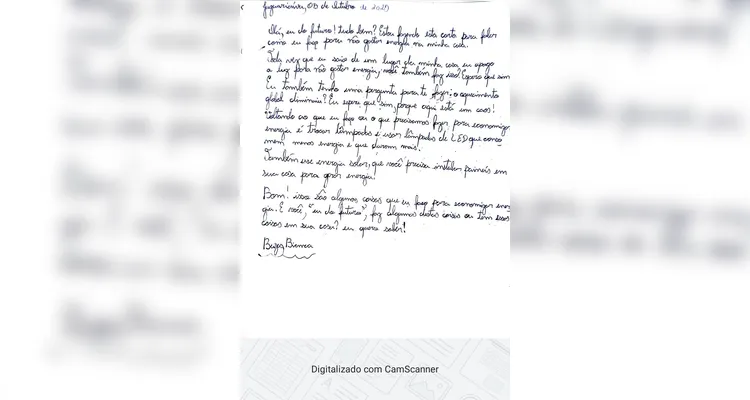 Jaguariaíva, 05 de Outubro de 2021
Olá, eu do futuro! tudo bem? Estou fazendo esta carta para falar
como eu faço para não gastar energia na minha casa.
Toda vez que eu saio de um lugar da minha casa eu apago
a luz para não gastar energia, você também faz isso? Espero que sim
Eu também tenho uma pergunta para te fazer: o aquecimento
global diminuiu? Eu espero que sim, porque aqui está um caos!
Voltando ao que eu faço ou o que precisamos fazer para economizar
energia é trocar lâmpadas e usar lâmpadas de LED que conso
mem menos energia e que duram mais!
Também use energia solar, que você precisa instalar painéis em
sua casa para gerar energia.
Bom! isso são algumas coisas que eu faço para economizar ener
gia. E você, "eu do futuro", faz algumas destas coisas ou tem essas
coisas em sua casa? eu quero saber!
Bianca
Digitalizado com CamScanner